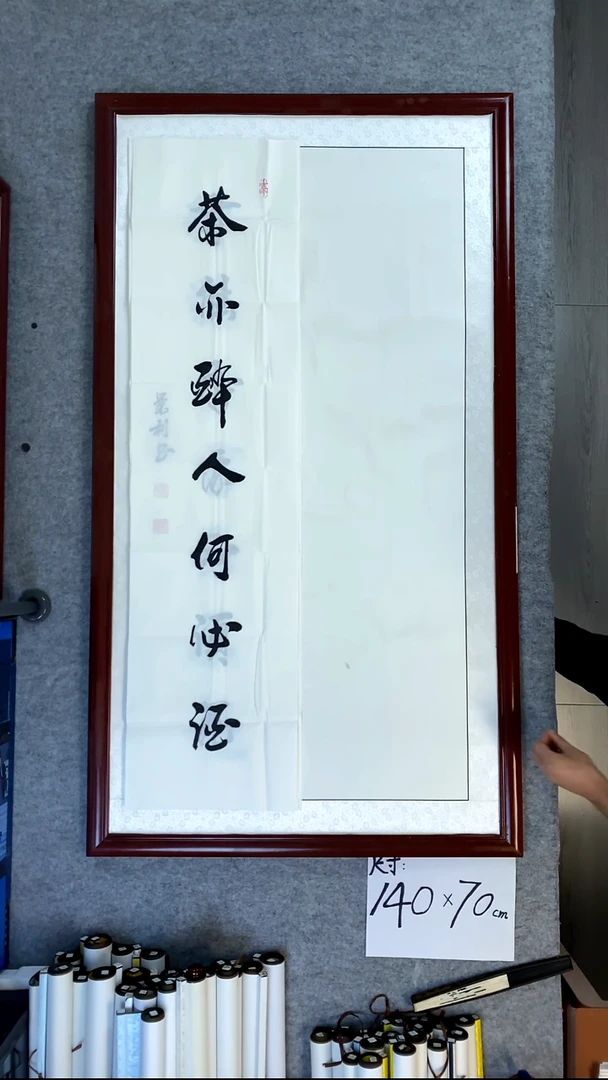 茶亦醉人何必酒
尺寸:
140×70cm